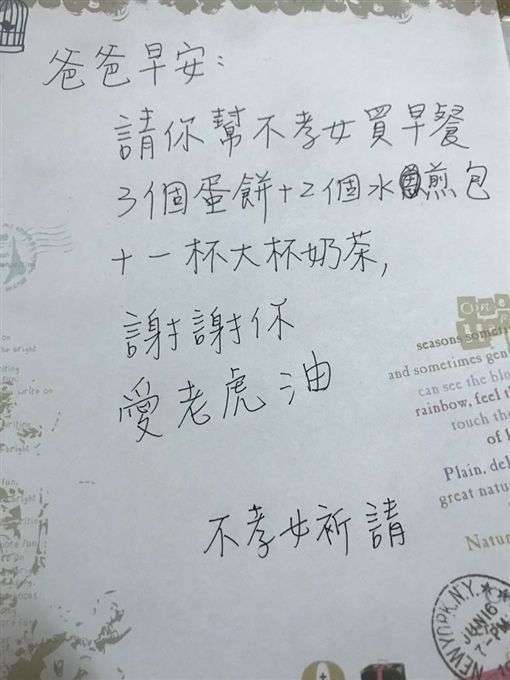 爸爸早安:
請你幫不孝女買早餐
3個蛋餅+2個水煎包
+一杯大杯奶茶,
謝謝你
愛老虎油
不孝女祈請
seasons
and sometimes
can see the
rainbow, feel
touch the
of
Plain,
great
NEW YORK, N.Y.
JUN 16
7-PM